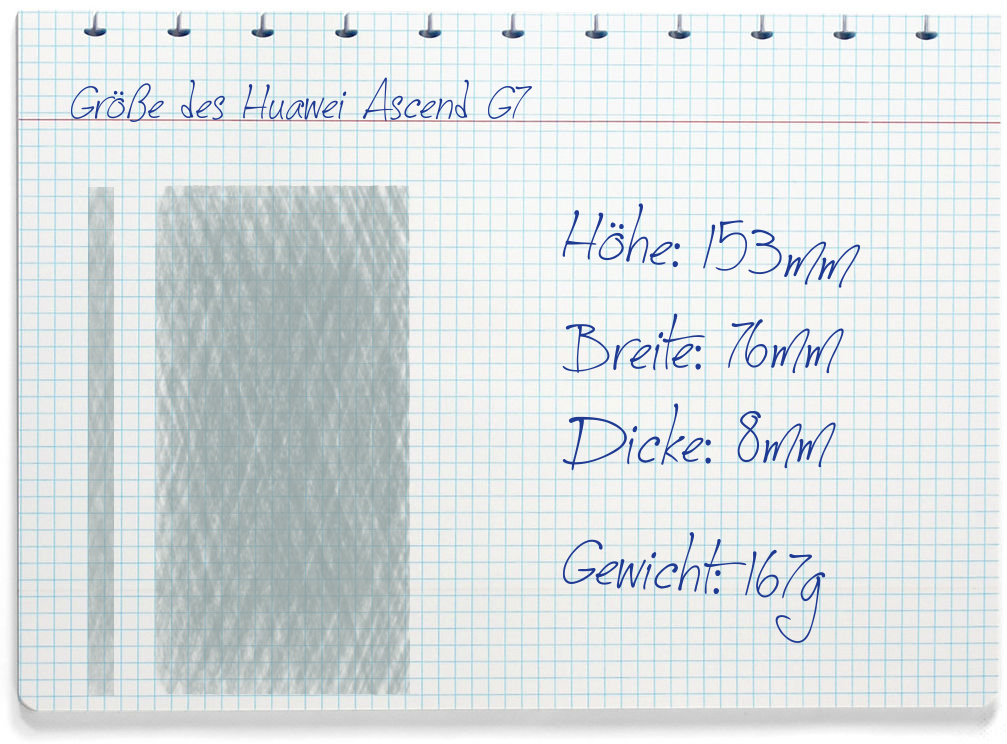 Größe des Huawei Ascend G7
Höhe: 153mm
Breite: 76mm
Dicke: 8mm
Gewicht: 167g